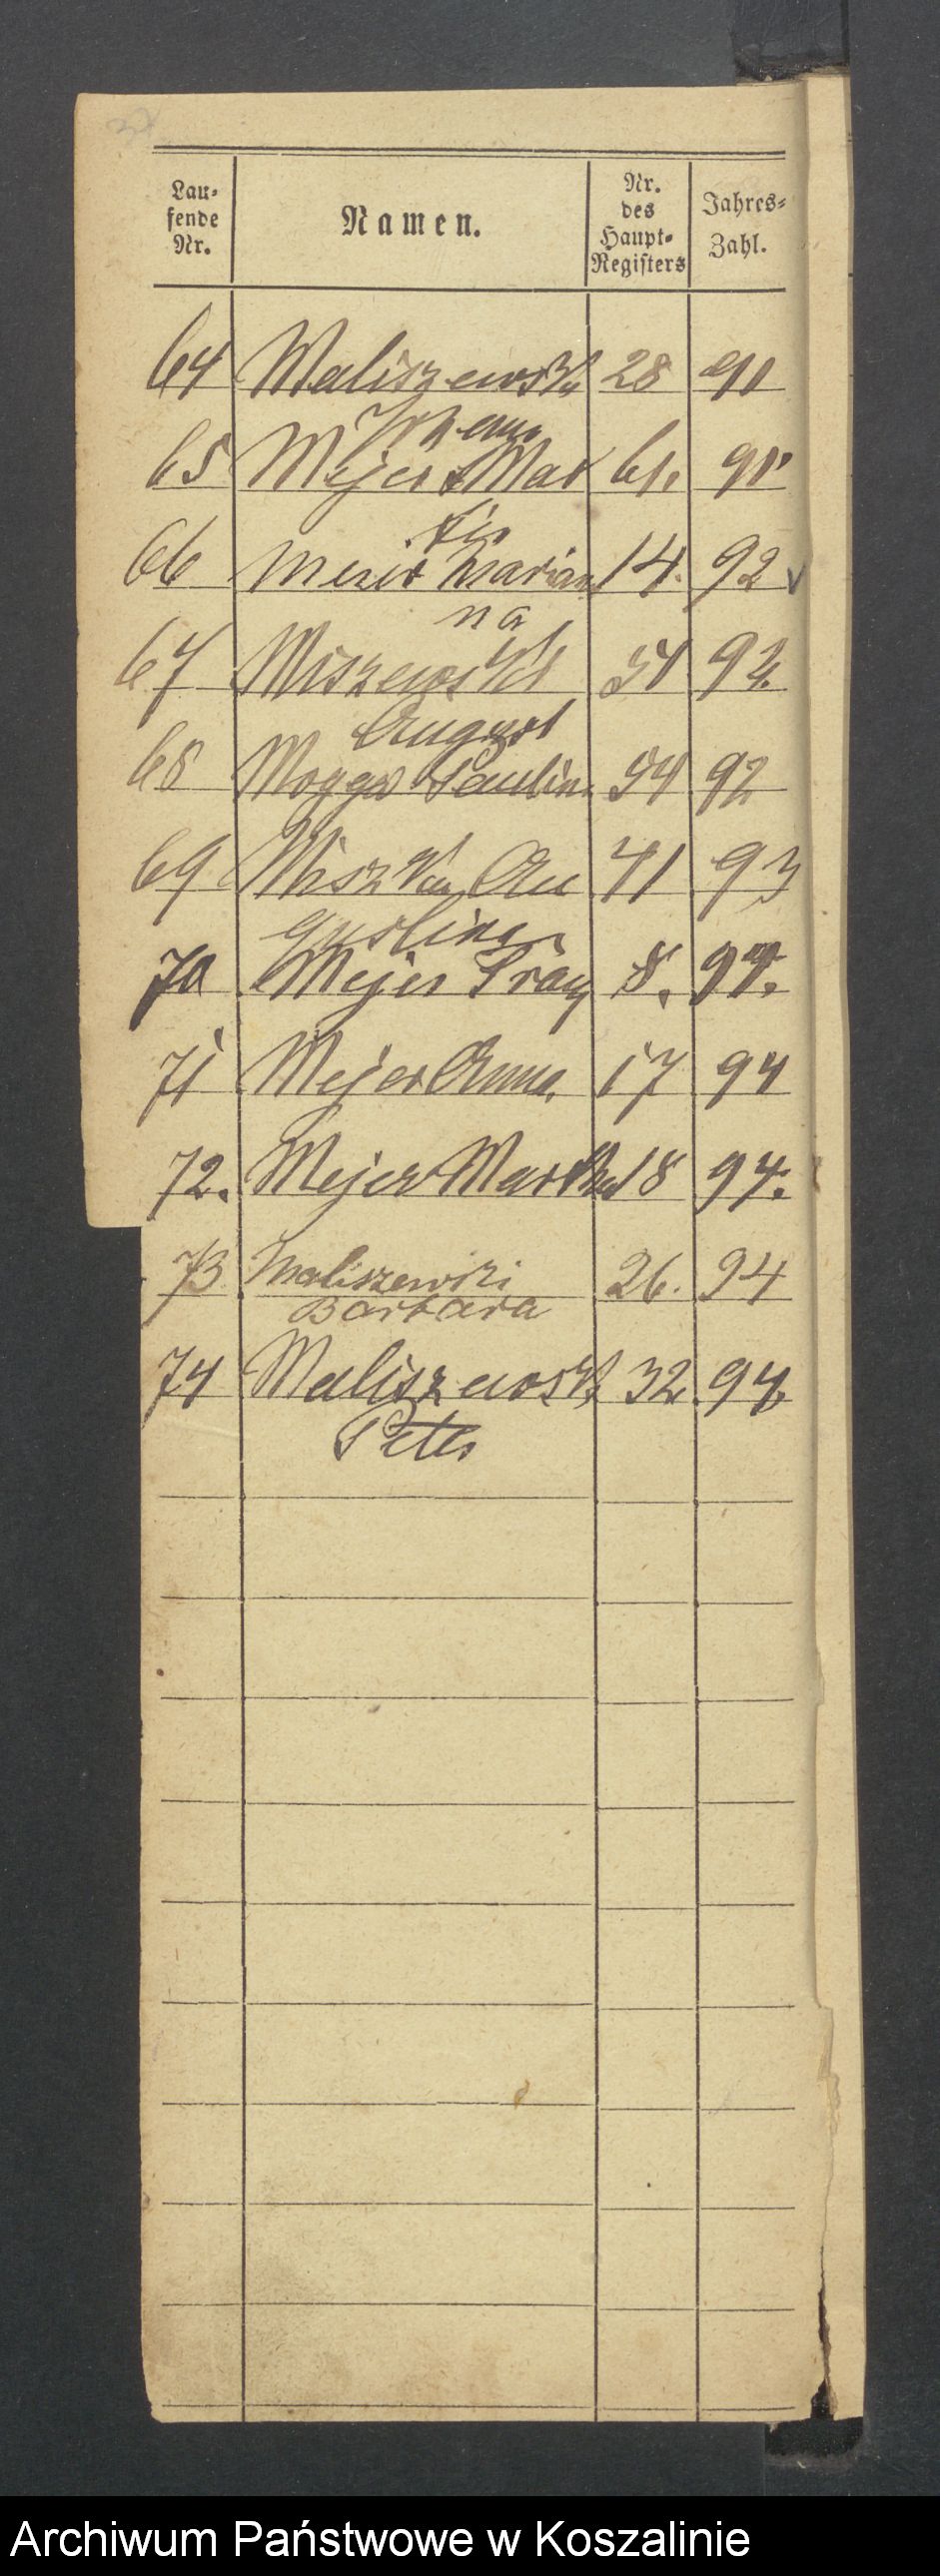 Lau-
fende
Nr.
Namen.
Nr.
des
Haupt-
Registers
Jahres-
Zahl.
64 Maliszewski 28 91
Johann
65 Mejer Mar 61. 91
tin
66 Meier Marian 14. 92
na
67 Miszewski 54 92.
August
68 Mogga Paulina 54 92
69 Miszka Au 41 93
gustina
70 Mejer Franz 8. 94.
71 Mejer Anna 17 94
72. Mejer Martha 18 94.
73 Maliszewski 26. 94
Barbara
74 Maliszewski 32 94.
Peter
Archiwum Państwowe w Koszalinie